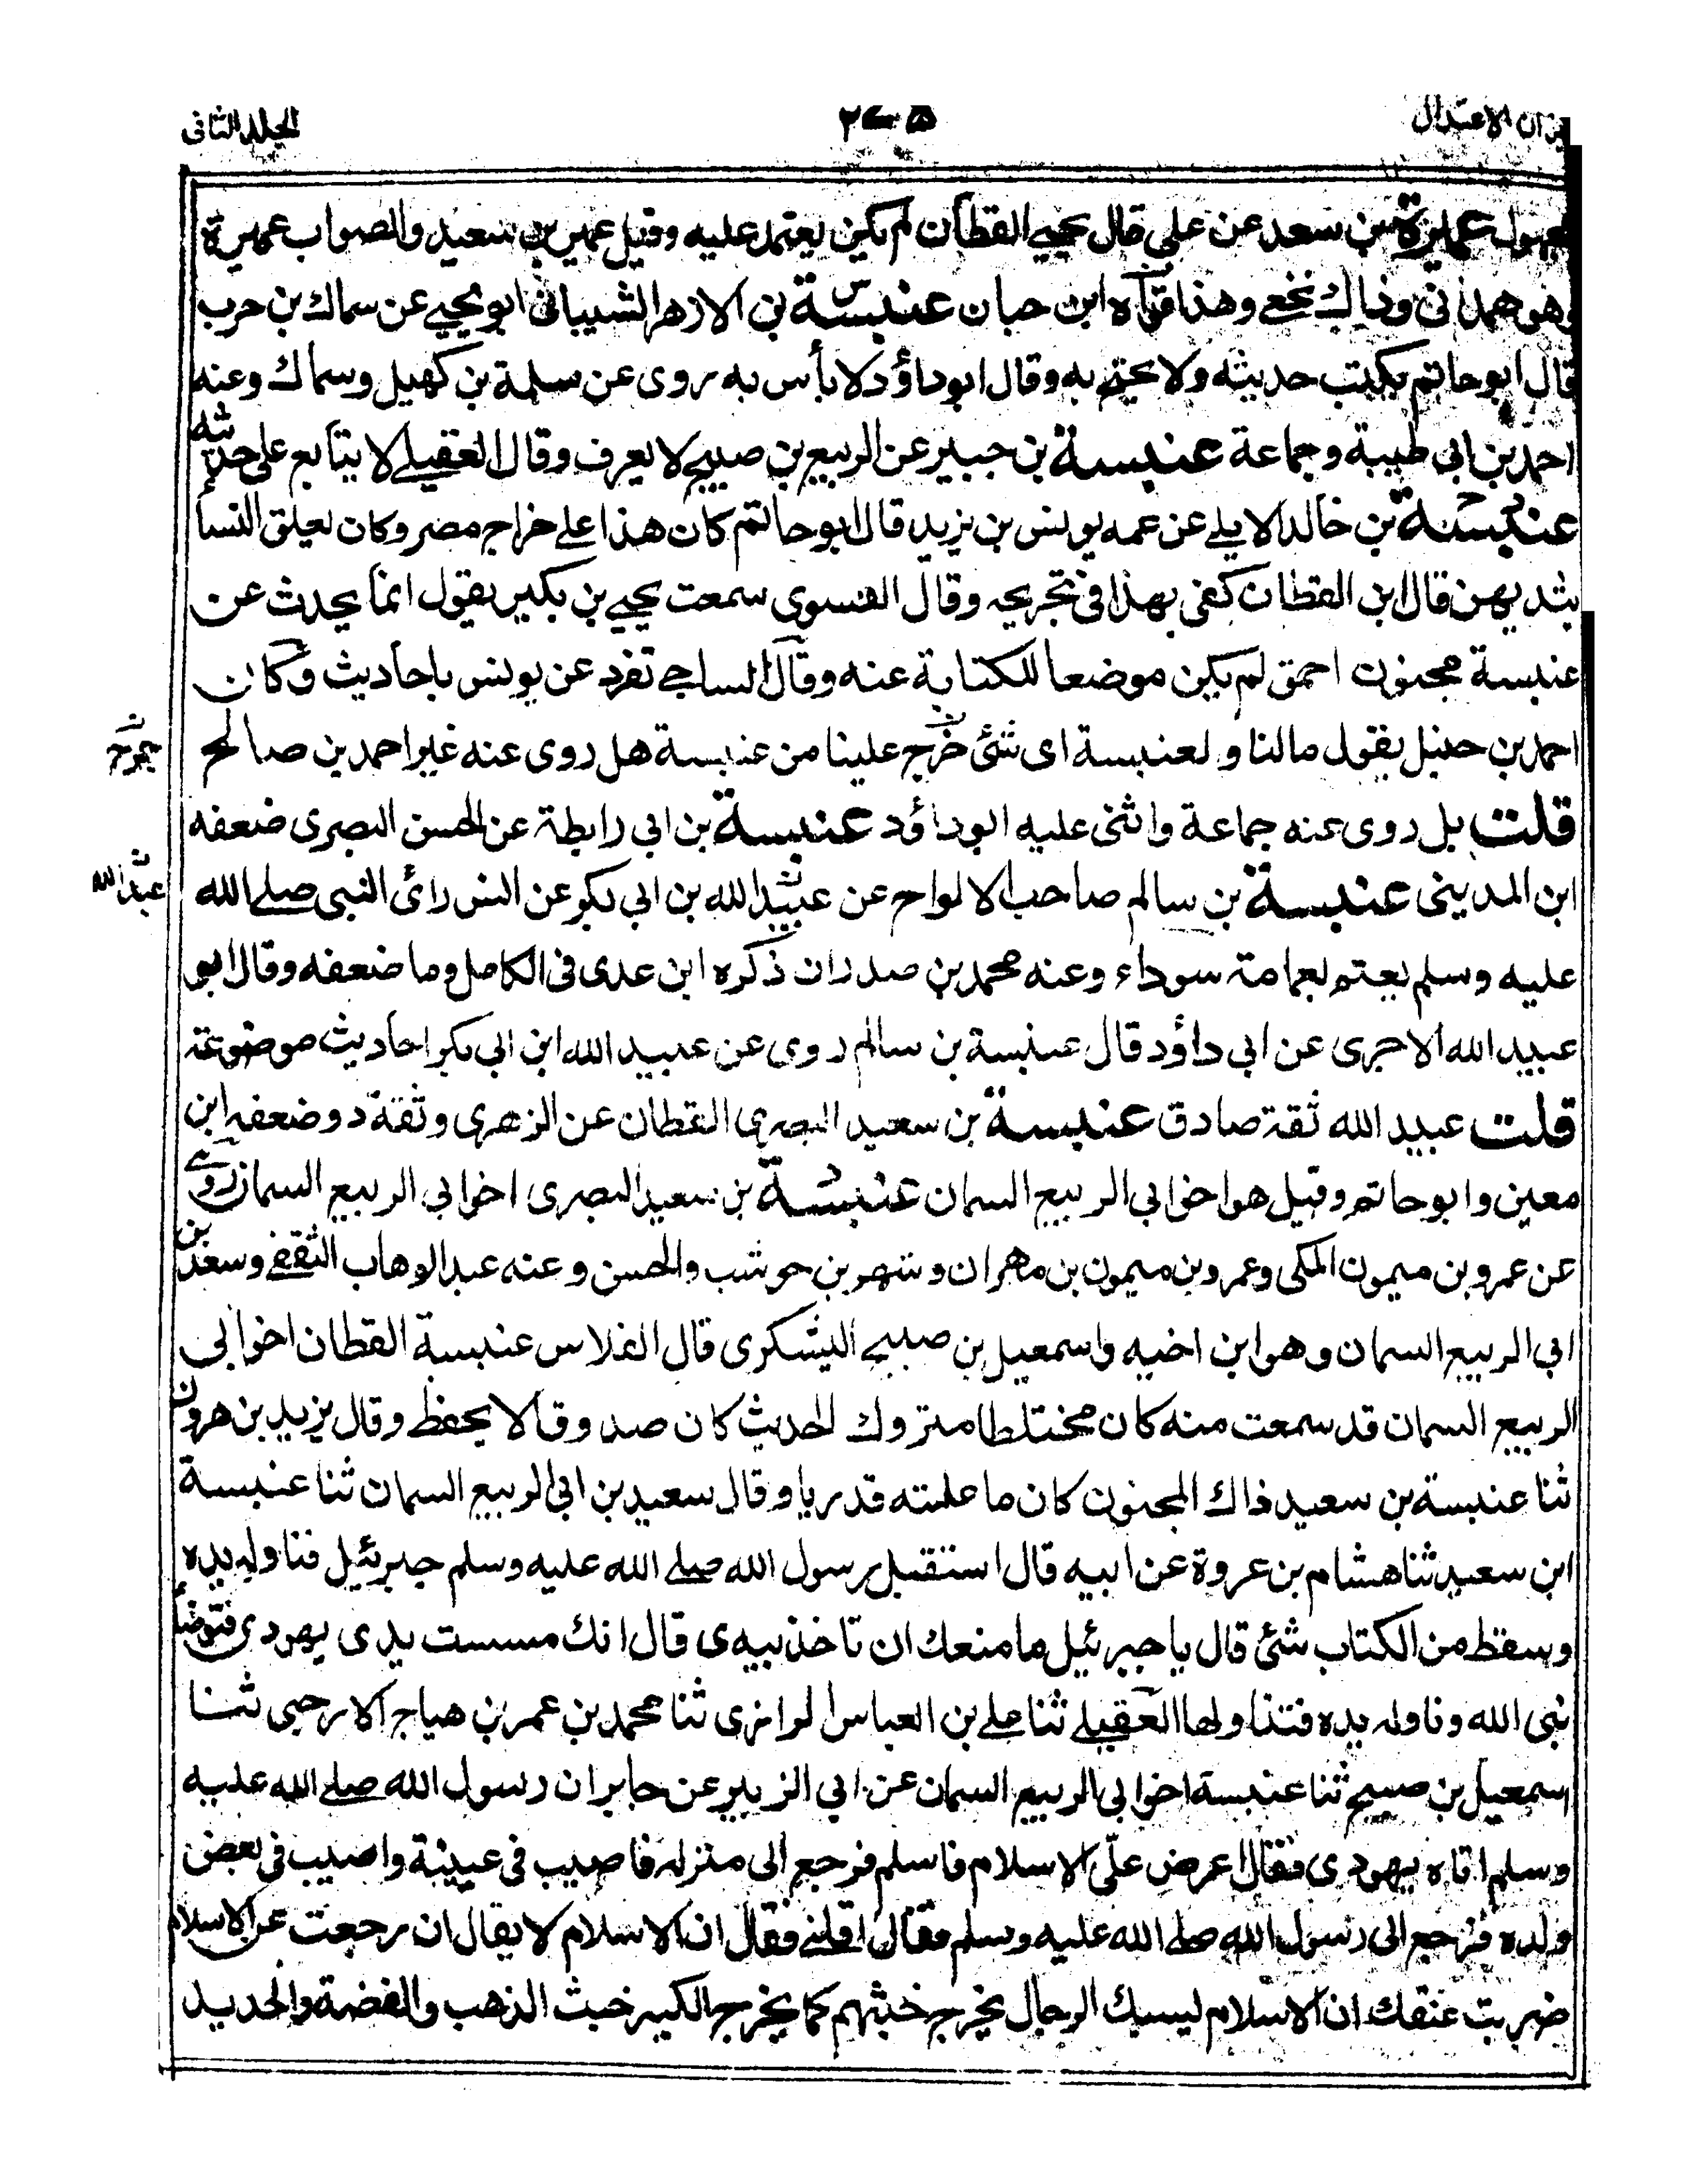 ميزان الاعتدال ٢٤٥ المجلد الثاني
مجهول عميرة بن سعد عن علي قال يحيى القطان لم يكن يعتمد عليه وقيل عمير بن سعيد والصواب عميرة
وهو همداني وذاك نخعي وهذا قواه ابن حبان عنبسة بن الازهر الشيباني ابو يحيى عن سماك بن حرب
قال ابو حاتم يكتب حديثه ولا يحتج به وقال ابو داؤد لا بأس به روى عن سلمة بن كهيل وسماك وعنه
احمد بن ابي طيبة وجماعة عنبسة بن جبير عن الربيع بن صبيح لا يعرف وقال العقيلي لا يتابع على حديثه
عنبسة بن خالد الايلي عن عمه يونس بن يزيد قال ابو حاتم كان هذا على خراج مصر وكان يعلق النسا
بثديهن قال ابن القطان كفى بهذا في تجريحه وقال الفسوي سمعت يحيى بن بكير يقول انما يحدث عن
عنبسة مجنون احمق لم يكن موضعا للكتابة عنه وقال الساجي تفرد عن يونس باحاديث وكان
احمد بن حنبل يقول مالنا ولعنبسة اى شئ خرج علينا من عنبسة هل روى عنه غير احمد بن صالح
يخرج
قلت بل روى عنه جماعة واثنى عليه ابو داؤد عنبسة بن ابي رابطة عن الحسن البصرى ضعفه
ابن المديني عنبسة بن سالم صاحب الالواح عن عبيد الله بن ابي بكر عن انس رائ النبي صلى الله
عبد الله
عليه وسلم يعتم بعمامة سوداء وعنه محمد بن صدران ذكره ابن عدى في الكامل وما ضعفه وقال ابو
عبيد الله الاجرى عن ابي داؤد قال عنبسة بن سالم روى عن عبيد الله ابن ابي بكر احاديث موضوعة
قلت عبيد الله ثقة صادق عنبسة بن سعيد البصرى القطان عن الزهرى وثقة د وضعفه ابن
معين وابو حاتم وقيل هو اخو ابي الربيع السمان عنبسة بن سعيد البصرى اخو ابي الربيع السمان روى
عن عمرو بن ميمون المكي وعمرو بن ميمون بن مهران وشهر بن حوشب والحسن وعنه عبد الوهاب الثقفي وسعد بن
ابي الربيع السمان وهو ابن اخيه واسمعيل بن صبيح اليشكرى قال الفلاس عنبسة القطان اخو ابي
الربيع السمان قد سمعت منه كان مختلطا متروك الحديث كان صدوقا لا يحفظ وقال يزيد بن هرون
ثنا عنبسة بن سعيد ذاك المجنون كان ما علمته قدريا وقال سعيد بن ابي الربيع السمان ثنا عنبسة
ابن سعيد ثنا هشام بن عروة عن ابيه قال استقبل رسول الله صلى الله عليه وسلم جبرئيل فناوله يده
وسقط من الكتاب شئ قال يا جبرئيل ما منعك ان تاخذ بيدى قال انك مسست يدى يهودى فتوضأ
نبي الله وناوله يده فتناولها العقيلي ثنا علي بن العباس الرازى ثنا محمد بن عمر بن هياج الارحبي ثنا
اسمعيل بن صبيح ثنا عنبسة اخو ابي الربيع السمان عن ابي الزبير عن جابر ان رسول الله صلى الله عليه
وسلم اتاه يهودى فقال اعرض علي الاسلام فاسلم فرجع الى منزله فاصيب في عينة واصيب في بعض
ولده فرجع الى رسول الله صلى الله عليه وسلم فقال اقلني فقال ان الاسلام لا يقال ان رجعت عن الاسلام
ضربت عنقك ان الاسلام ليسبك الرجال يخرج خبثهم كما يخرج الكير خبث الذهب والفضة والحديد